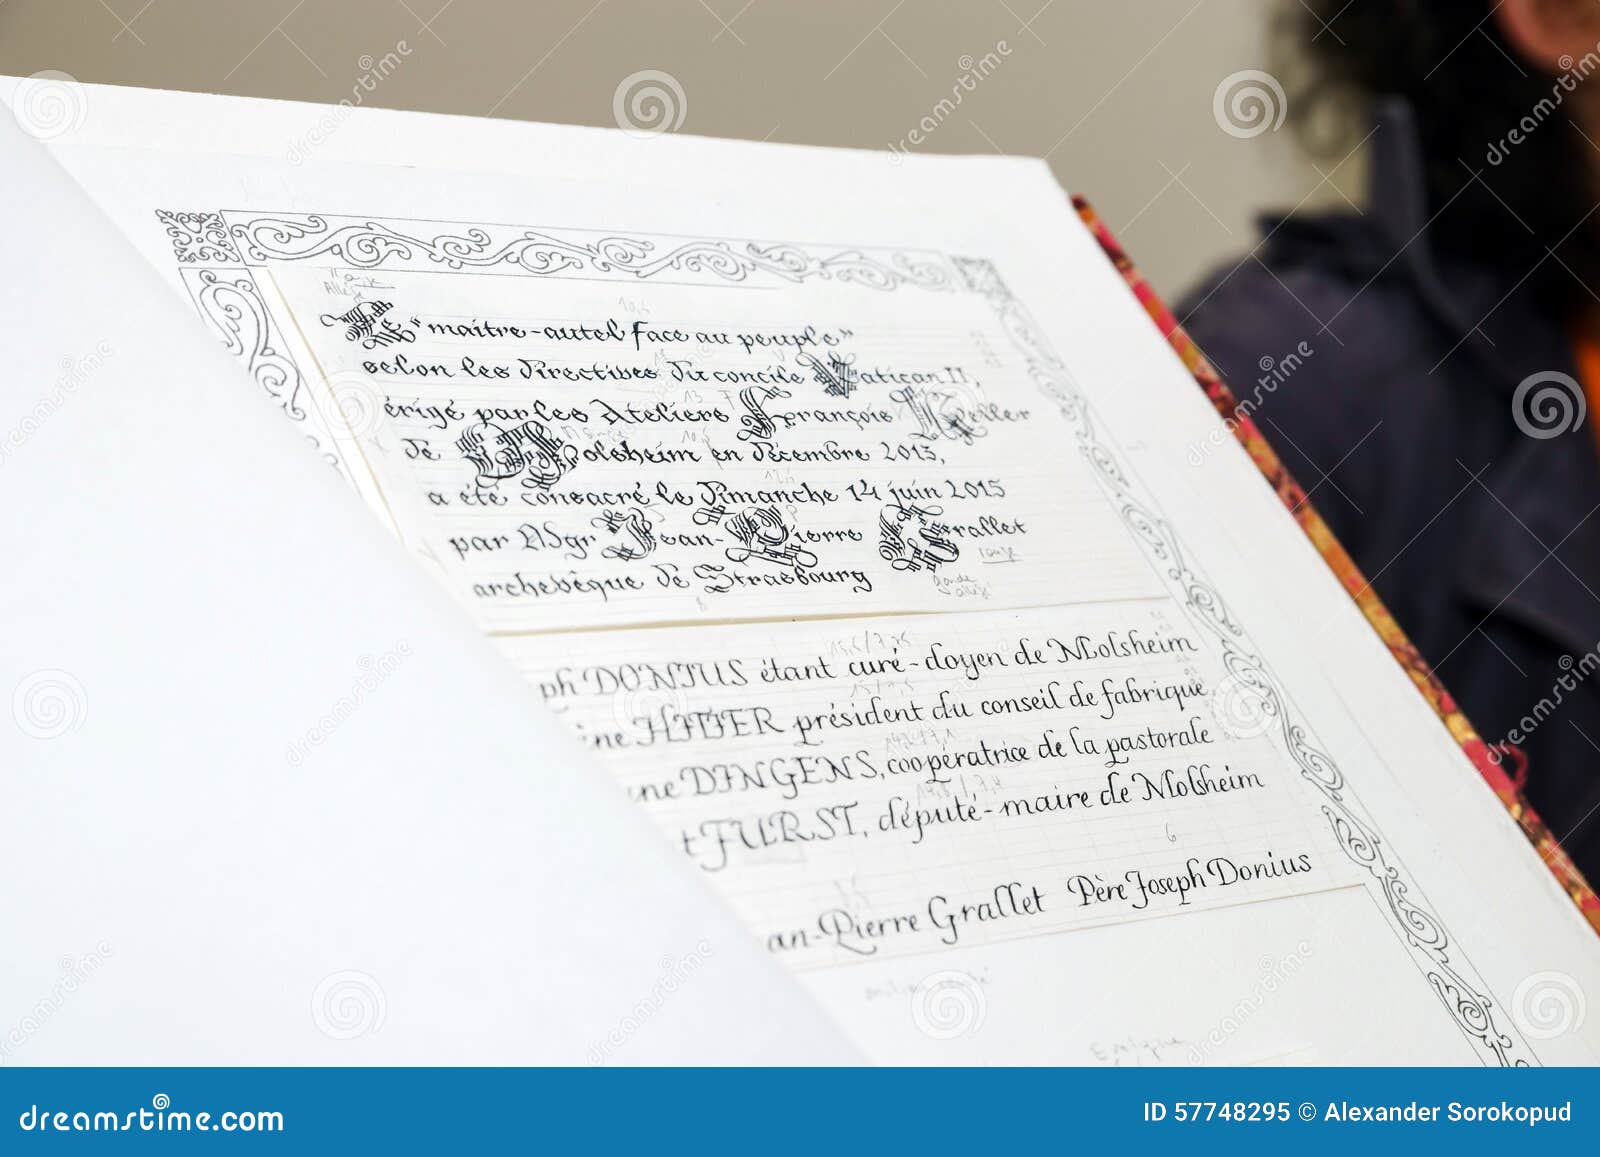 Le "maître-autel face au peuple"
selon les directives du concile Vatican II,
érigé par les Ateliers François Keller
de Molsheim en décembre 2013,
a été consacré le dimanche 14 juin 2015
par Mgr Jean-Pierre Grallet
archevêque de Strasbourg
ph DONIUS étant curé-doyen de Molsheim
ine HITIER président du conseil de fabrique,
ine DINGENS, coopératrice de la pastorale
t FURST, député-maire de Molsheim
an-Pierre Grallet Père Joseph Donius
dreamstime.com
ID 57748295 © Alexander Sorokopud